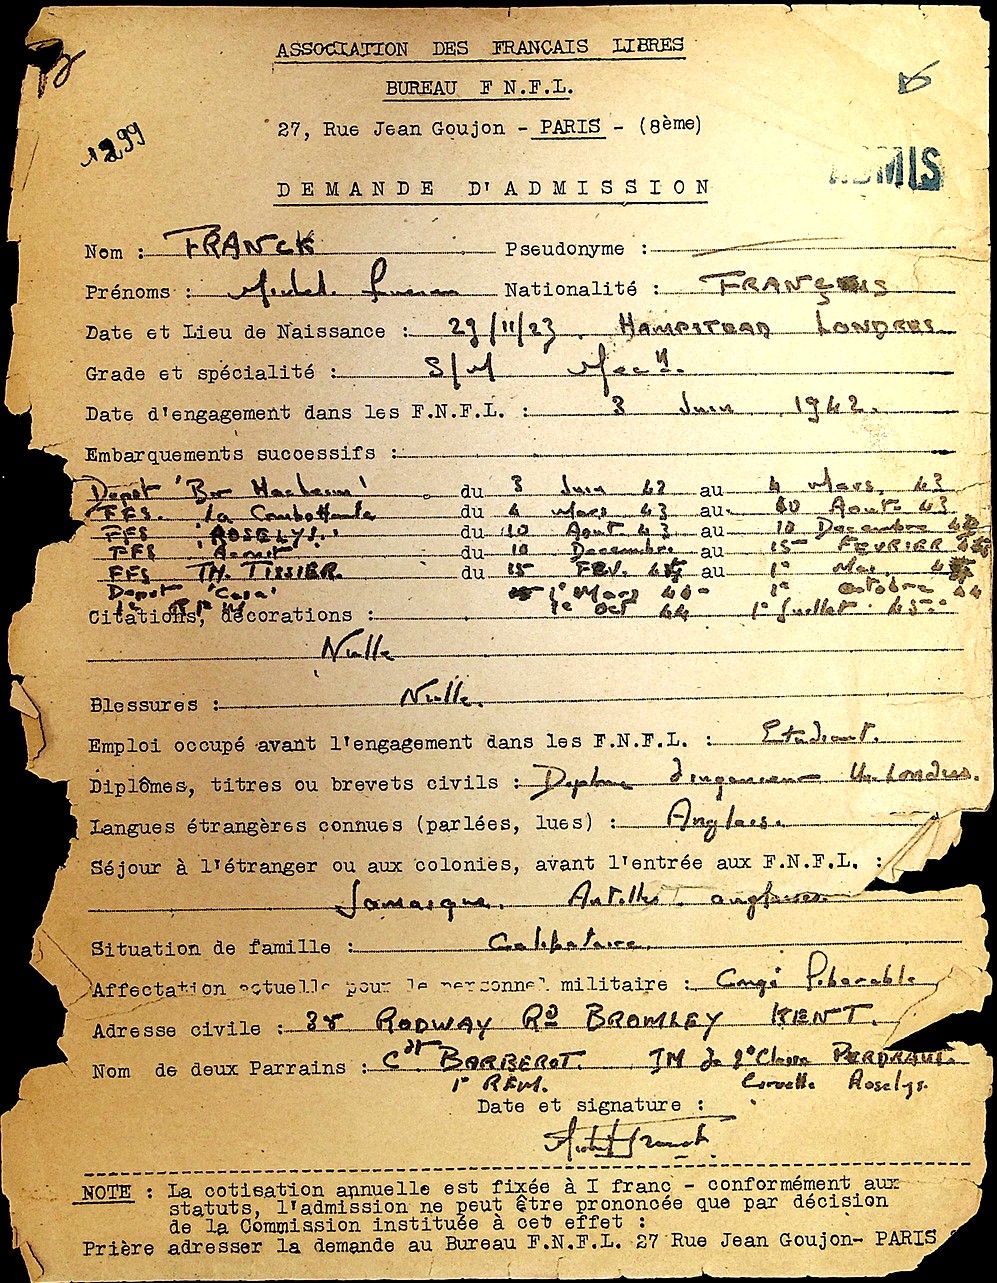 ASSOCIATION DES FRANCAIS LIBRES
BUREAU F N.F.L.
27, Rue Jean Goujon - PARIS - (8ème)
1299
ADMIS
DEMANDE D'ADMISSION
Nom : FRANCK Pseudonyme :
Prénoms : Michel Lucien Nationalité : FRANÇAIS
Date et Lieu de Naissance : 29/11/23 HAMPSTEAD LONDRES
Grade et spécialité : S/M Mec
Date d'engagement dans les F.N.F.L. : 3 Juin 1942.
Embarquements successifs :
Depot 'Bir Hacheim' du 3 Juin 42 au 4 Mars 43
FFS. La Combattante du 4 Mars 43 au 10 Aout 43
FFS 'ROSELYS' du 10 Aout 43 au 10 Decembre
FFS du 10 Decembre au 15 FEVRIER
FFS TH. TISSIER. du 15 FEV. au 1° Mar
Depot 'Casa' 1° Mars 44 1° Octobre 44
1° R F M 1° Oct 44 1° Juillet 45
Citations, décorations :
Nulle
Blessures : Nulle.
Emploi occupé avant l'engagement dans les F.N.F.L. : Etudiant.
Diplômes, titres ou brevets civils : Diplome d'ingenieur Londres.
Langues étrangères connues (parlées, lues) : Anglais.
Séjour à l'étranger ou aux colonies, avant l'entrée aux F.N.F.L. :
Jamaique. Antilles anglaises
Situation de famille : Celibataire.
Affectation actuelle pour le personnel militaire : Congé liberable
Adresse civile : 38 RODWAY RD BROMLEY KENT.
Nom de deux Parrains : Cdt BARBEROT. IM de 2° Classe PERDRAUT.
1° RFM. Corvette Roselys.
Date et signature :
Michel Franck
NOTE : La cotisation annuelle est fixée à I franc - conformément aux
statuts, l'admission ne peut être prononcée que par décision
de la Commission instituée à cet effet :
Prière adresser la demande au Bureau F.N.F.L. 27 Rue Jean Goujon- PARIS